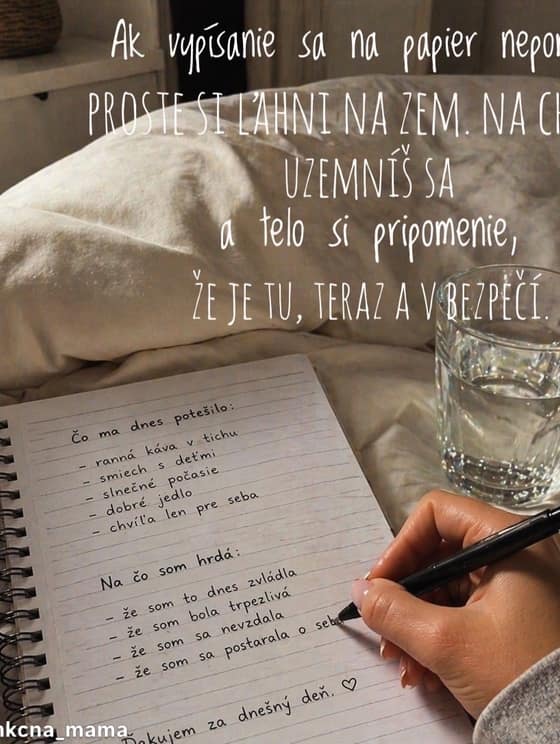 Ak vypísanie sa na papier
PROSTE SI ĽAHNI NA ZEM. NA
UZEMNÍŠ SA
a telo si pripomenie,
ŽE JE TU, TERAZ A V BEZPEČÍ.
Čo ma dnes potešilo:
- ranná káva v tichu
- smiech s deťmi
- slnečné počasie
- dobré jedlo
- chvíľa len pre seba
Na čo som hrdá:
- že som to dnes zvládla
- že som bola trpezlivá
- že som sa nevzdala
- že som sa postarala o seba
Ďakujem za dnešný deň. ♡
nkcna_mama